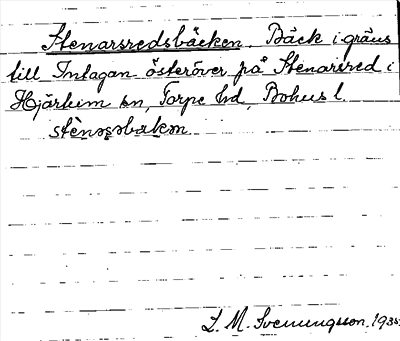 Stenarsredsbäcken. Bäck i gräns
till Intagan österöver på Stenarsred i
Hjärtum sn, Torpe hd, Bohus l.
L. M. Svenungsson. 1935.